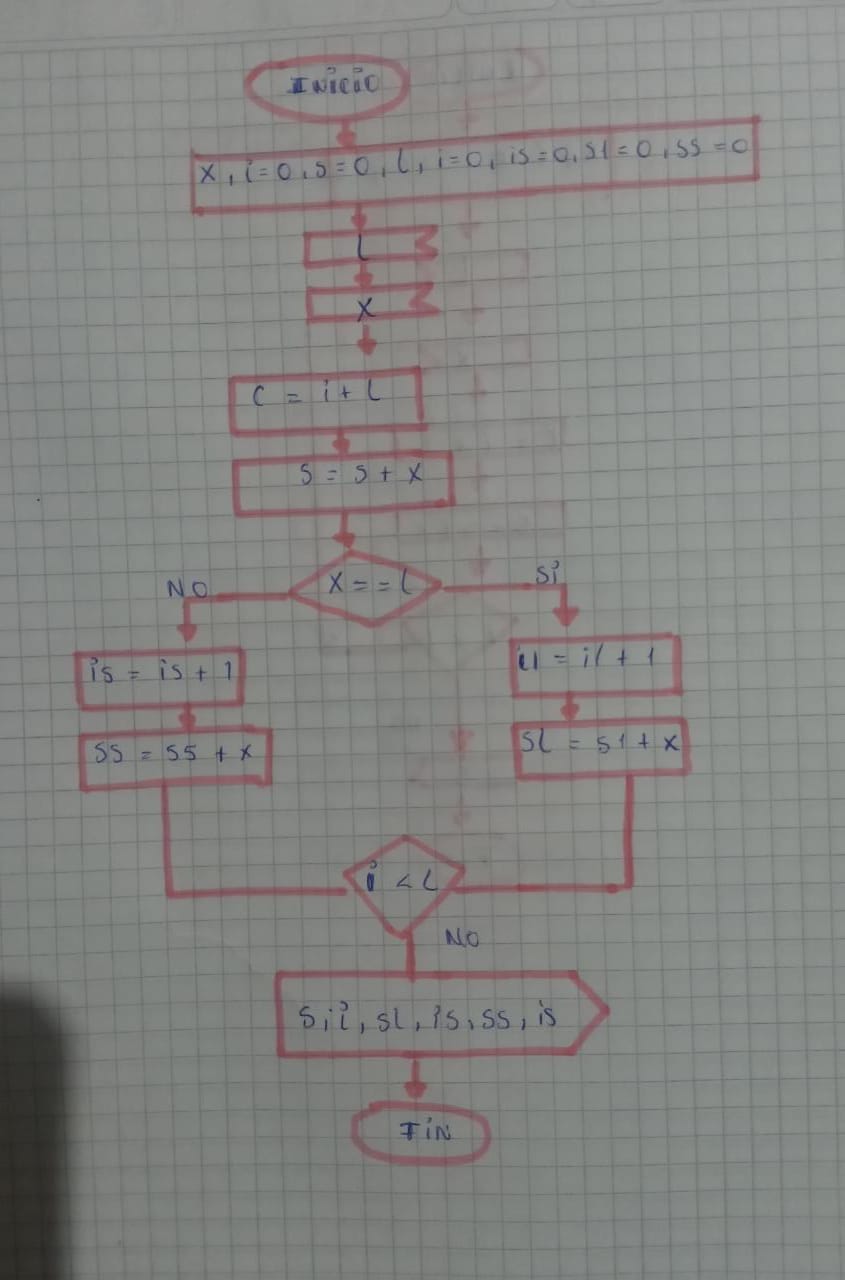 INICIO
X, i=0, s=0, L, i=0, is=0, S1=0, SS=0
L
X
C = i + L
S = S + X
X == L
NO
Si
is = is + 1
il = il + 1
SS = SS + X
SL = S1 + X
i < L
NO
S, i, SL, is, SS, is
FIN